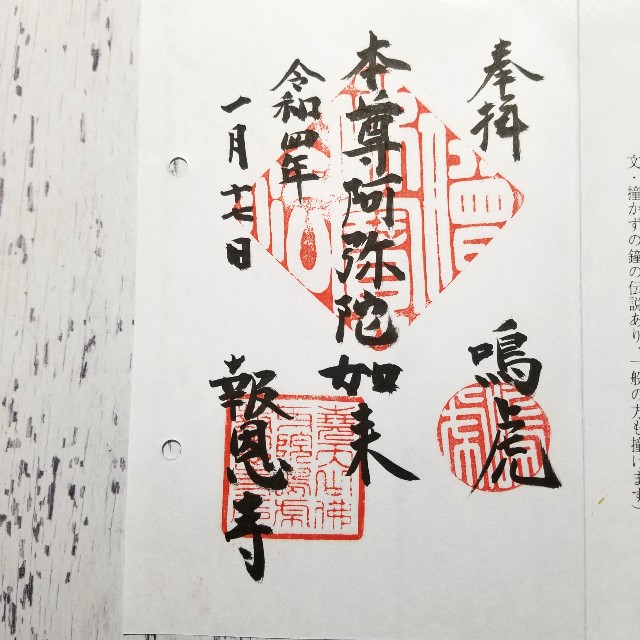 文・撞かずの鐘の伝説あり、一般の方も撞けます)
奉拝
鳴虎
本尊阿弥陀如来
令和四年
一月十七日
報恩寺